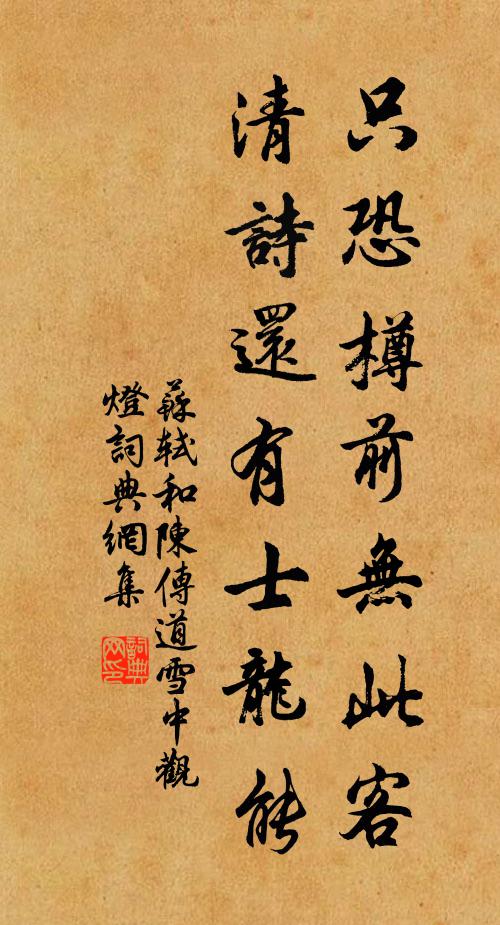 只恐樽前無此客
清詩還有士龍能
蘇軾和陳傳道雪中觀
燈詞典網集
詞典
网印